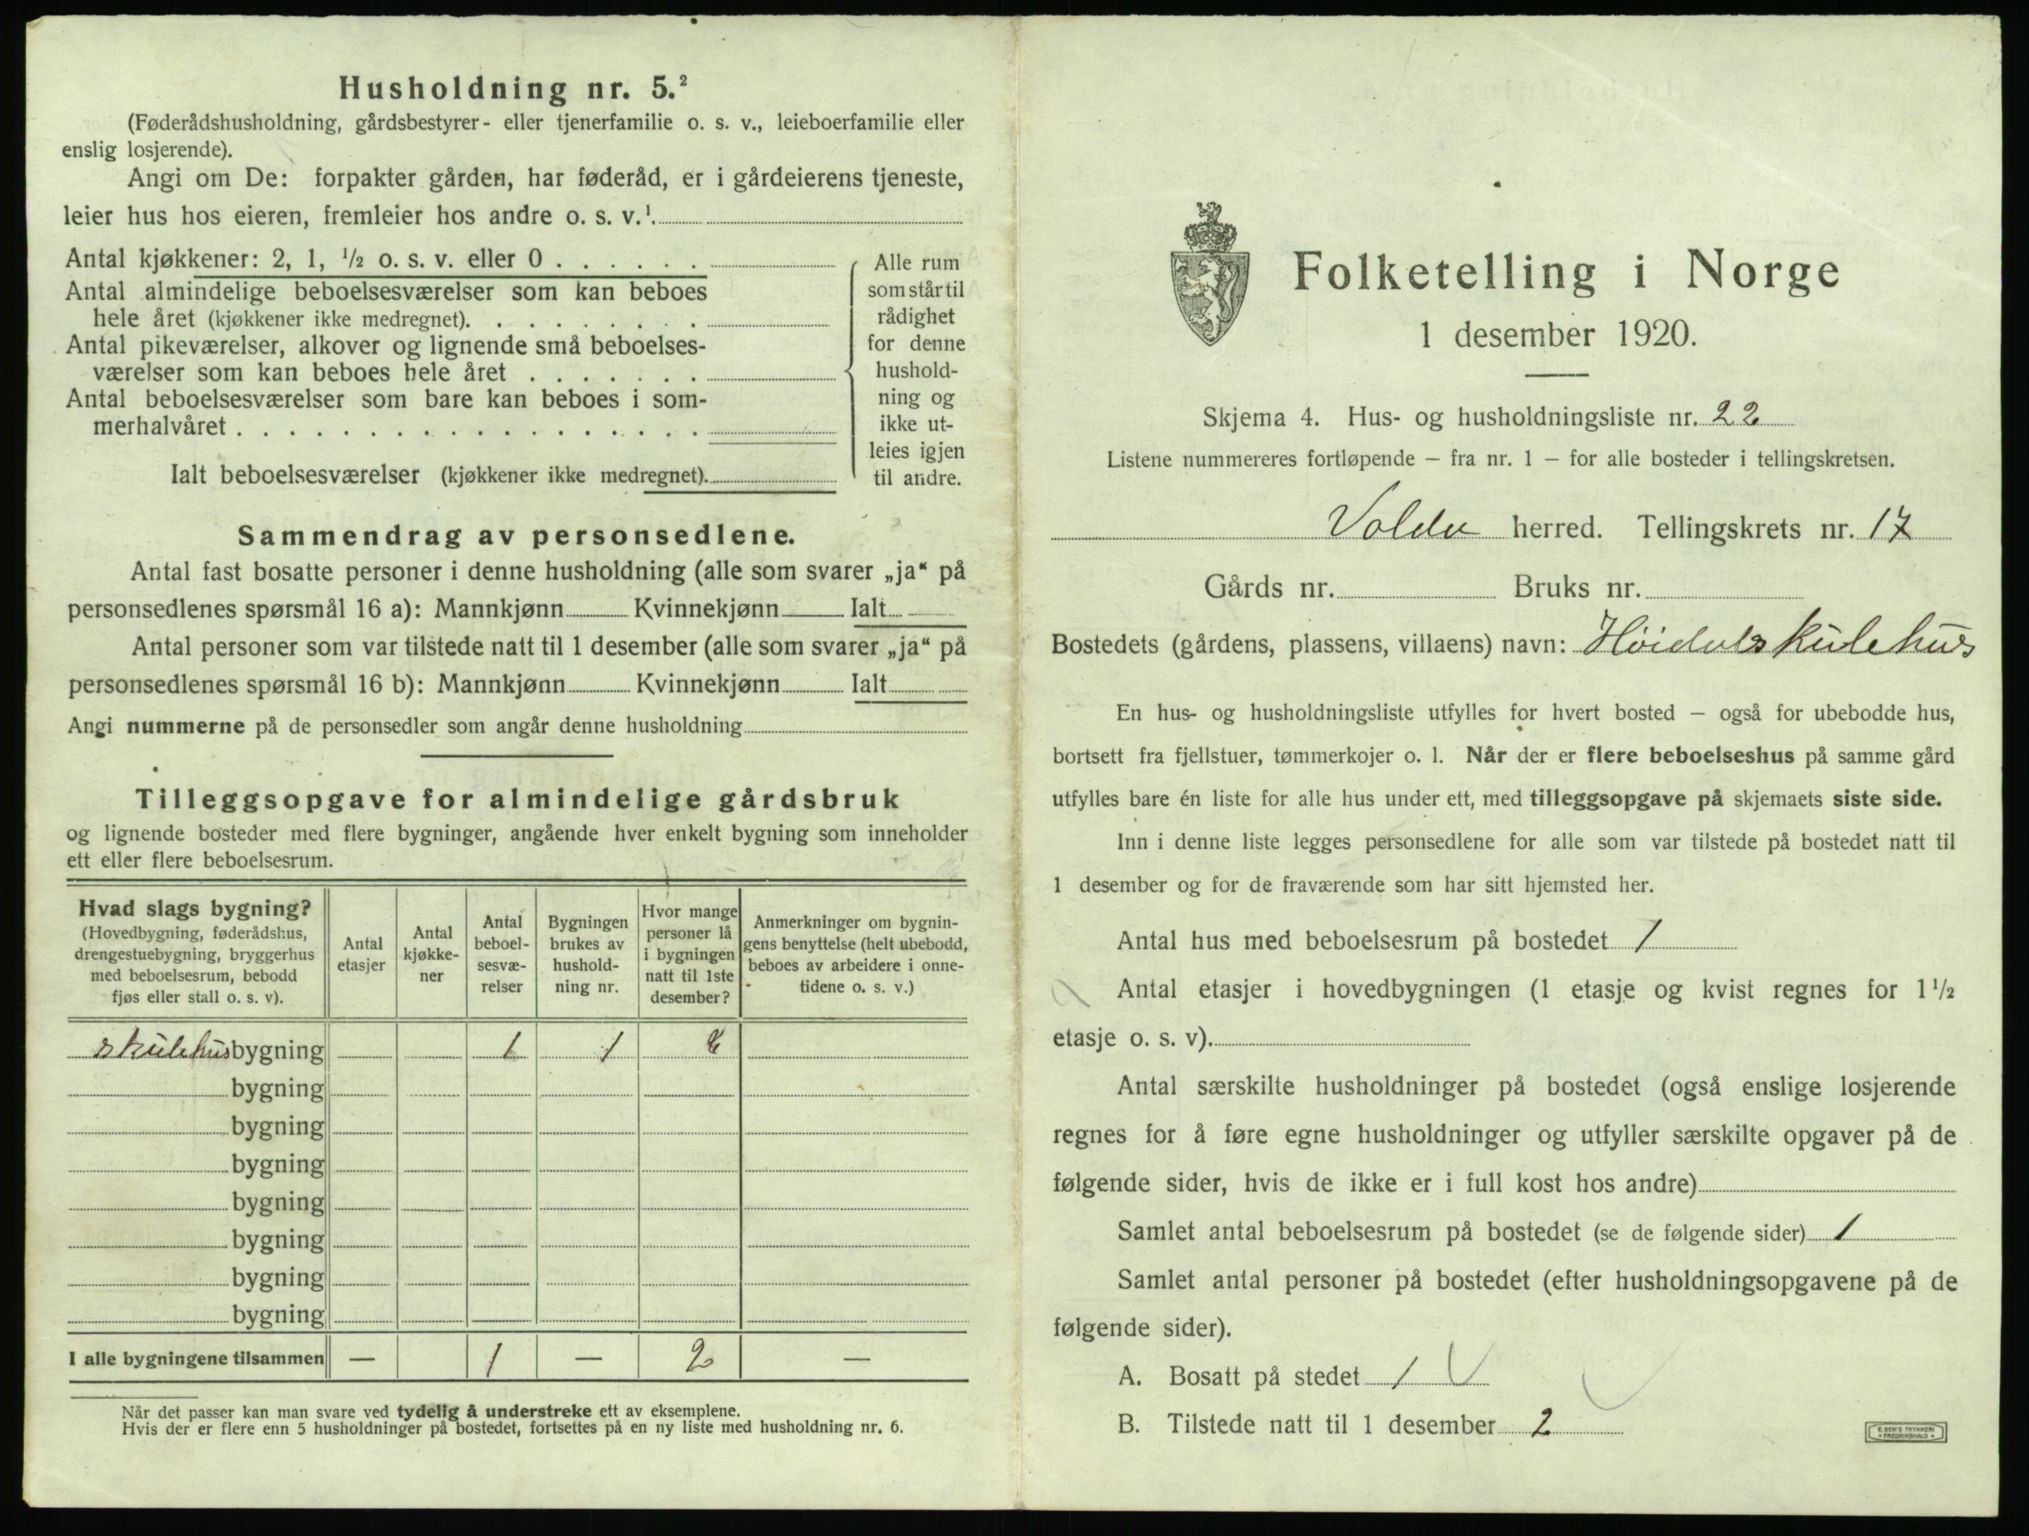 Husholdning nr. 5.²
(Føderådshusholdning, gårdsbestyrer- eller tjenerfamilie o. s. v., leieboerfamilie eller
enslig losjerende).
Angi om De: forpakter gården, har føderåd, er i gårdeierens tjeneste,
leier hus hos eieren, fremleier hos andre o. s. v.¹
Antal kjøkkener: 2, 1, ½ o. s. v. eller 0
Antal almindelige beboelsesværelser som kan beboes
hele året (kjøkkener ikke medregnet).
Antal pikeværelser, alkover og lignende små beboelses-
værelser som kan beboes hele året
Antal beboelsesværelser som bare kan beboes i som-
merhalvåret
Ialt beboelsesværelser (kjøkkener ikke medregnet).
Alle rum
som står til
rådighet
for denne
hushold-
ning og
ikke ut-
leies igjen
til andre.
Sammendrag av personsedlene.
Antal fast bosatte personer i denne husholdning (alle som svarer „ja“ på
personsedlenes spørsmål 16 a): Mannkjønn Kvinnekjønn Ialt
Antal personer som var tilstede natt til 1 desember (alle som svarer „ja“ på
personsedlenes spørsmål 16 b): Mannkjønn Kvinnekjønn Ialt
Angi nummerne på de personsedler som angår denne husholdning
Tilleggsopgave for almindelige gårdsbruk
og lignende bosteder med flere bygninger, angående hver enkelt bygning som inneholder
ett eller flere beboelsesrum.
Hvad slags bygning?
(Hovedbygning, føderådshus,
drengestuebygning, bryggerhus
med beboelsesrum, bebodd
fjøs eller stall o. s. v).
Antal
etasjer
Antal
kjøkke-
ner
Antal
beboel-
sesvæ-
relser
Bygningen
brukes av
hushold-
ning nr.
Hvor mange
personer lå
i bygningen
natt til 1ste
desember?
Anmerkninger om bygnin-
gens benyttelse (helt ubebodd,
beboes av arbeidere i onne-
tidene o. s. v.)
skulehusbygning 1 1 2
bygning
bygning
bygning
bygning
bygning
bygning
bygning
I alle bygningene tilsammen — 1 — 2 —
Når det passer kan man svare ved tydelig å understreke ett av eksemplene.
Hvis der er flere enn 5 husholdninger på bostedet, fortsettes på en ny liste med husholdning nr. 6.
Folketelling i Norge
1 desember 1920.
Skjema 4. Hus- og husholdningsliste nr. 22
Listene nummereres fortløpende – fra nr. 1 – for alle bosteder i tellingskretsen.
Volda herred. Tellingskrets nr. 17
Gårds nr. Bruks nr.
Bostedets (gårdens, plassens, villaens) navn: Høidalskulehus
En hus- og husholdningsliste utfylles for hvert bosted – også for ubebodde hus,
bortsett fra fjellstuer, tømmerkojer o. l. Når der er flere beboelseshus på samme gård
utfylles bare én liste for alle hus under ett, med tilleggsopgave på skjemaets siste side.
Inn i denne liste legges personsedlene for alle som var tilstede på bostedet natt til
1 desember og for de fraværende som har sitt hjemsted her.
Antal hus med beboelsesrum på bostedet 1
Antal etasjer i hovedbygningen (1 etasje og kvist regnes for 1½
etasje o. s. v).
Antal særskilte husholdninger på bostedet (også enslige losjerende
regnes for å føre egne husholdninger og utfyller særskilte opgaver på de
følgende sider, hvis de ikke er i full kost hos andre)
Samlet antal beboelsesrum på bostedet (se de følgende sider) 1
Samlet antal personer på bostedet (efter husholdningsopgavene på de
følgende sider).
A. Bosatt på stedet 1
B. Tilstede natt til 1 desember 2
E. SEM'S TRYKKERI
FREDRIKSHALD